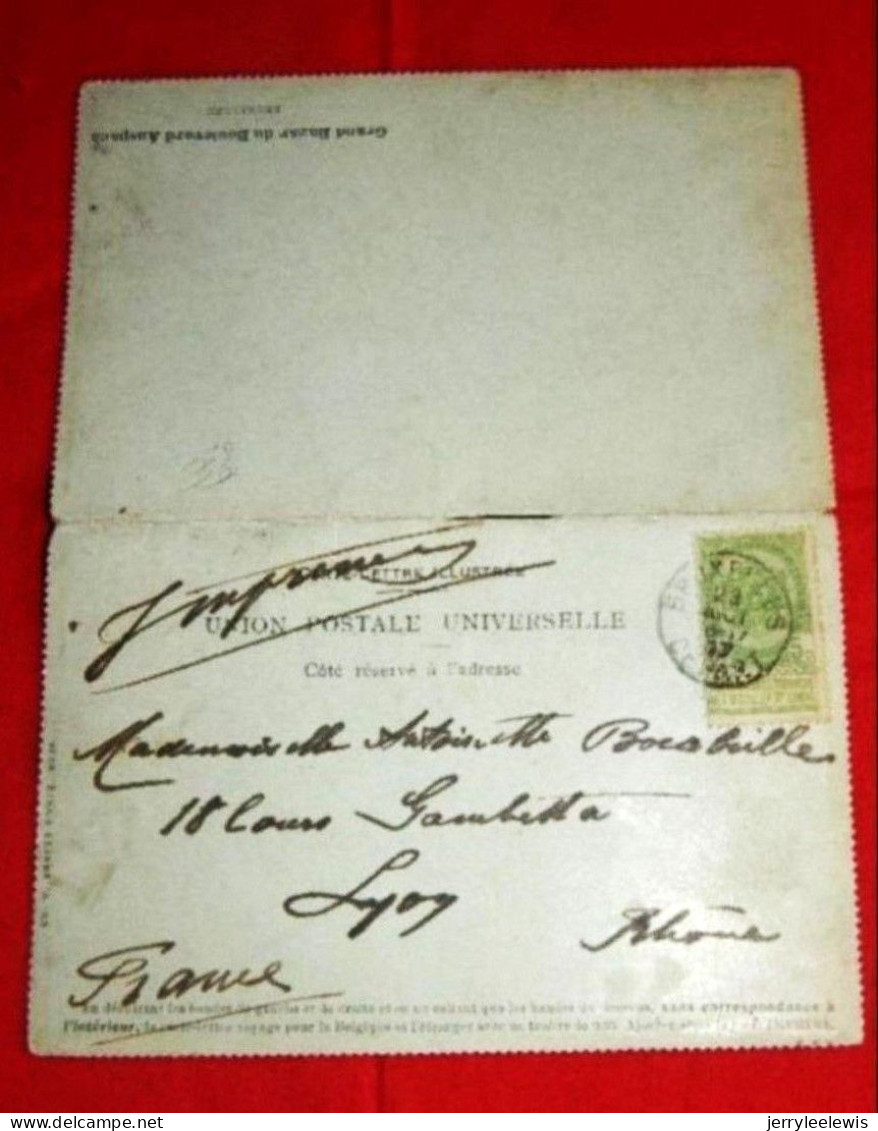 Grand Bazar du Boulevard Anspach
BRUXELLES
Imprimé
CARTE-LETTRE ILLUSTRÉE
UNION POSTALE UNIVERSELLE
Côté réservé à l'adresse
BRUXELLES
DEPART
Mademoiselle Antoinette
18 Cours Gambetta
Lyon
Rhône
France
En détachant les bandes de gauche et de droite et en ne collant que les bandes du dessous, sans correspondance à
l'intérieur, voyage pour la Belgique et l'étranger avec un timbre de
jerryleelewis